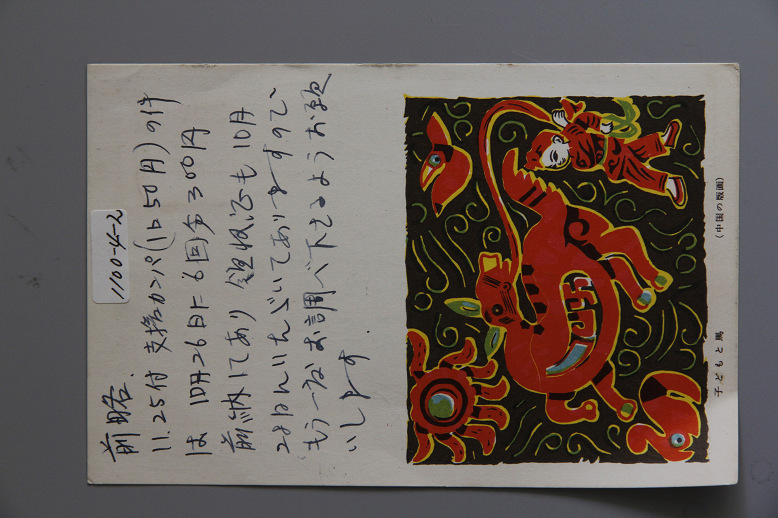 前略.
11.25付 支援カンパ(1口50円)の件
は 10月26日に6回分300円
前納してあり 領収証も 10月
28日にいただいてありますので、
もう一度お調べ下さるようお願
いします.
1100-4-2
子どもと馬
(中国の版画)